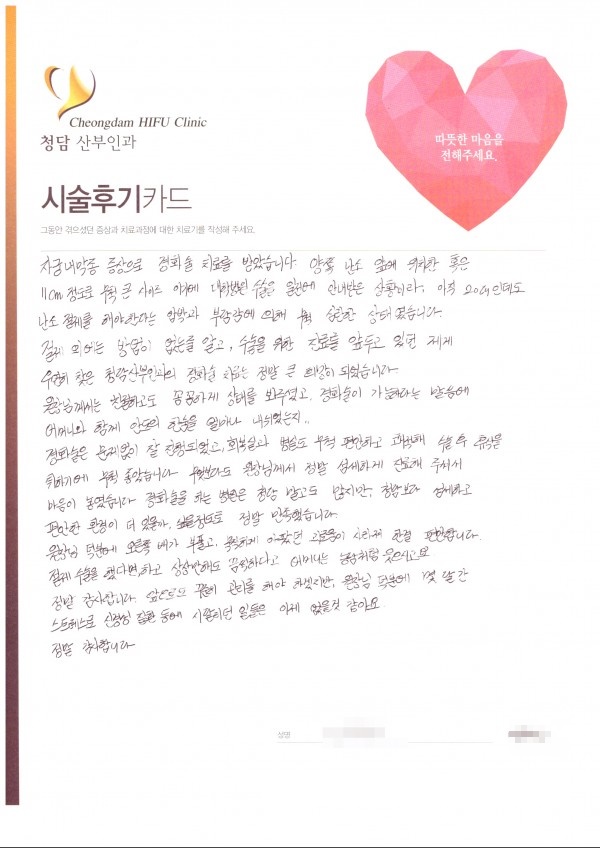 Cheongdam HIFU Clinic
청담 산부인과
따뜻한 마음을
전해주세요.
시술후기카드
그동안 겪으셨던 증상과 치료과정에 대한 치료기를 작성해 주세요.
자궁내막종 증상으로 경화술 치료를 받았습니다. 양쪽 난소 앞에 위치한 혹은
11cm 정도로 무척 큰 사이즈 이기에 대학병원 수술은 일전에 안내받은 상황이라, 아직 20대인데도
난소 절제를 해야한다는 압박과 부담감에 의해 무척 심란한 상태였습니다.
절제 외에는 방법이 없는줄 알고, 수술을 위한 진료를 앞두고 있던 제게
우연히 찾은 청담산부인과의 경화술 치료는 정말 큰 희망이 되었습니다.
원장님께서는 친절하고도 꼼꼼하게 상태를 봐주셨고, 경화술이 가능하다는 말씀에
어머니와 함께 안도의 한숨을 얼마나 내쉬었는지..
경화술은 문제없이 잘 진행되었고, 회복실과 병실도 무척 편안하고 쾌적해 수술 후 휴식을
취하기에 무척 좋았습니다. 무엇보다도 원장님께서 정말 섬세하게 진료해 주셔서
마음이 놓였습니다. 경화술을 하는 병원은 청담 말고도 많지만, 청담보다 섬세하고
편안한 환경이 더 있을까, 싶을정도로 정말 만족했습니다.
원장님 덕분에 오른쪽 배가 부풀고, 뻐근하게 아팠던 고통이 사라져 한결 편안합니다.
절제 수술을 했다면, 하고 상상만해도 끔찍하다고 어머니는 농담처럼 웃으시고요
정말 감사합니다. 앞으로도 꾸준히 관리를 해야 하겠지만, 원장님 덕분에 몇 달 간
스트레스로 신경성 질환 등에 시달리던 일들은 이제 없을것 같아요.
정말 감사합니다
성명